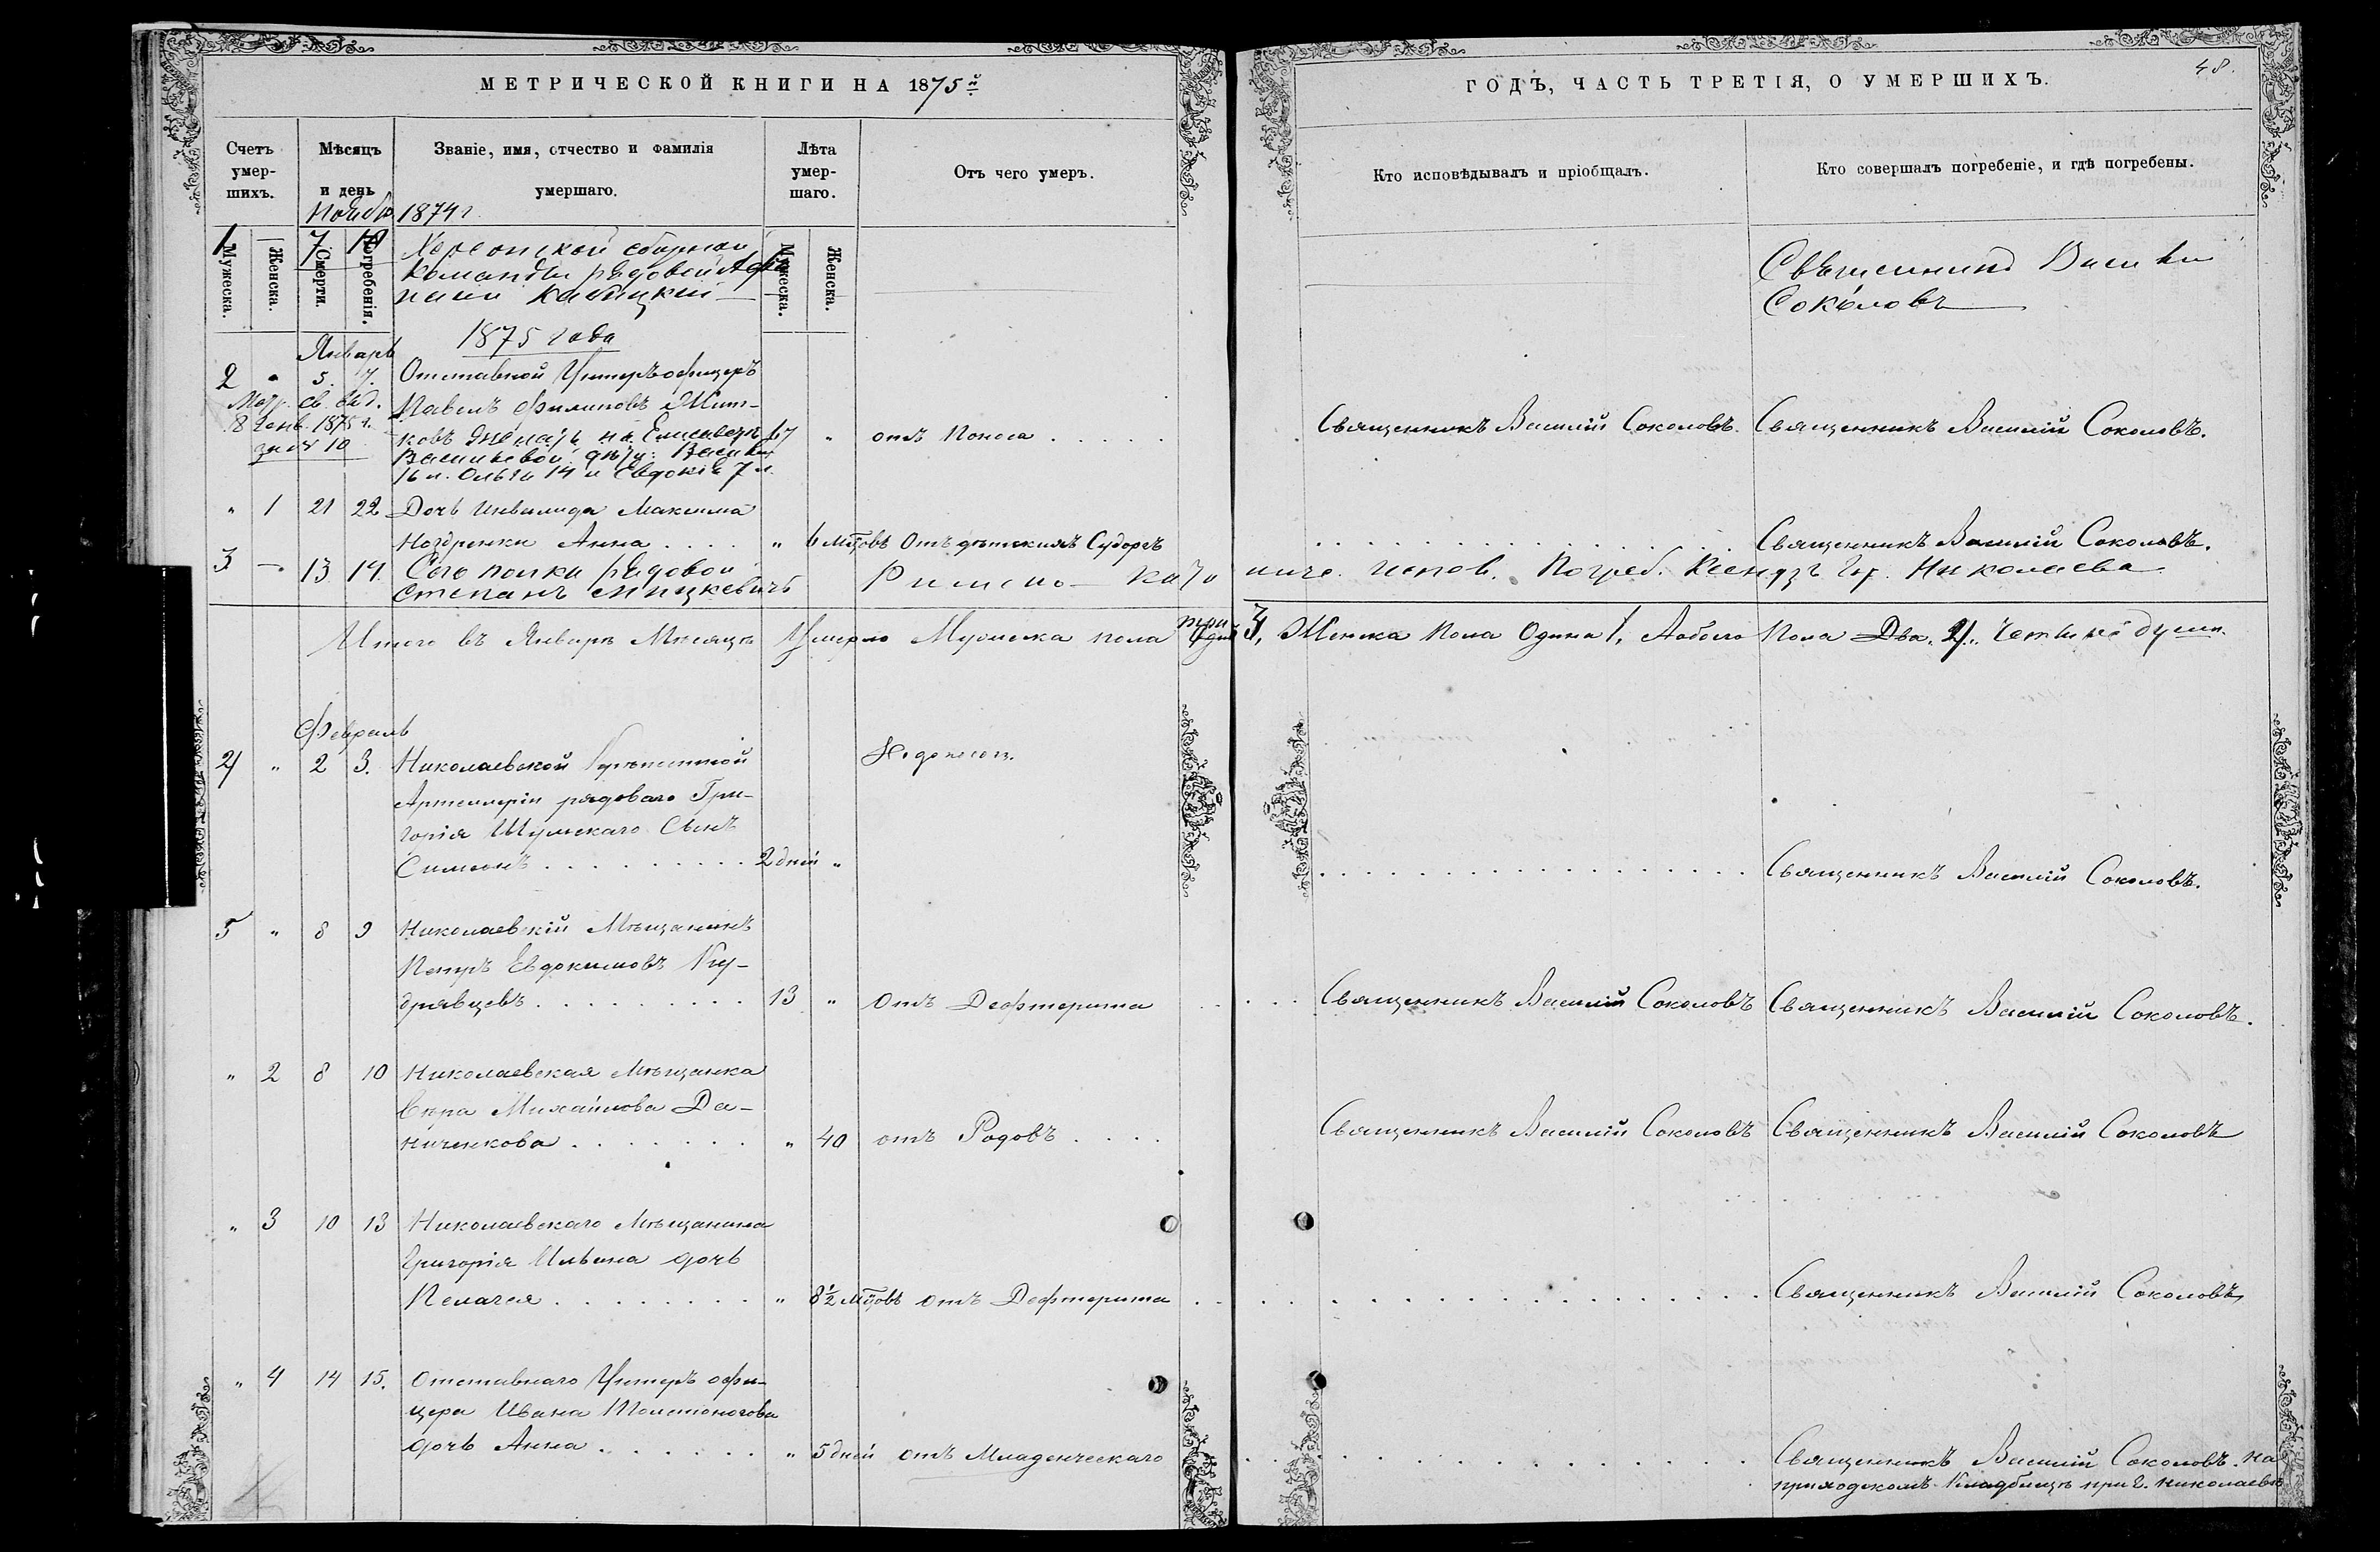 МЕТРИЧЕСКОЙ КНИГИ НА 1875й
Счетъ умер-шихъ.
Мѣсяцъ и день
Званіе, имя, отчество и фамилія умершаго.
Лѣта умер-шаго.
Отъ чего умеръ.
Мужеска.
Женска.
Смерти.
Погребенія.
Мужеска.
Женска.
Ноябрь 1874 г.
1 7
Херсонской сборной
команды рядовой
1875 года
Январь
2 " 5. 7. Отставной Унтеръ офицеръ
Метр. св. выд.
Павелъ Филиповъ Жит-
8 Генв. 1875 г.
ковъ женатъ на Елисаветѣ 67 " отъ Поноса
за № 10
Васильевой дѣти: Василий
16 л. Ольги 14 и Евдокія 7 л.
" 1 21 22 Дочь инвалида Максима
Ноздренки Анна " 6 мцовъ Отъ дѣтскихъ Судоргъ
3 — 13 14. Сего полка рядовой
Степанъ Мицкевичъ Римско-като
Итого въ Январѣ Мѣсяцѣ Умерло Мужеска пола три
Февраль
4 " 2 3. Николаевской Крѣпостной
Артиллеріи рядоваго Гри-
горія Шумскаго Сынъ
Симеонъ 2 дней "
5 " 8 9 Николаевскій Мѣщанинъ
Петръ Евдокимовъ Ку-
дрявцевъ 13 " отъ Дефтерита
" 2 8 10 Николаевская Мѣщанка
Вѣра Михайлова Да-
ниченкова " 40 отъ Родовъ
" 3 10 13 Николаевскаго Мѣщанина
Григорія Ильина дочь
Пелагея " 8½ мцовъ отъ Дефтерита
" 4 14 15. Отставнаго Унтеръ офи-
цера Ивана Толстоногова
дочь Анна " 5 дней отъ Младенческаго
48.
ГОДЪ, ЧАСТЬ ТРЕТІЯ, О УМЕРШИХЪ.
Кто исповѣдывалъ и пріобщалъ.
Кто совершалъ погребеніе, и гдѣ погребены.
Священникъ Василій
Соколовъ
Священникъ Василій Соколовъ. Священникъ Василій Соколовъ.
Священникъ Василій Соколовъ.
личе. испов. Погреб. Ксендзъ гор. Николаева
3, Женска Пола Одина 1, Аобоего Пола Два. 4. Четыре души.
Священникъ Василій Соколовъ.
Священникъ Василій Соколовъ Священникъ Василій Соколовъ.
Священникъ Василій Соколовъ Священникъ Василій Соколовъ
Священникъ Василій Соколовъ
Священникъ Василій Соколовъ. на
приходскомъ Кладбищѣ при г. Николаевѣ